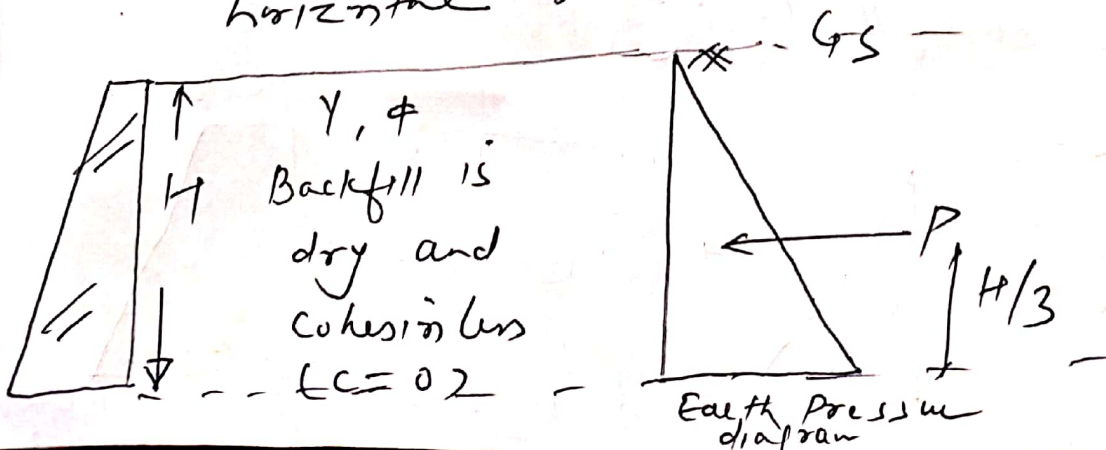 horizontal
GS
γ, φ
H Backfill is
dry and
cohesionless
{c=0}
P
H/3
Earth Pressure
diagram